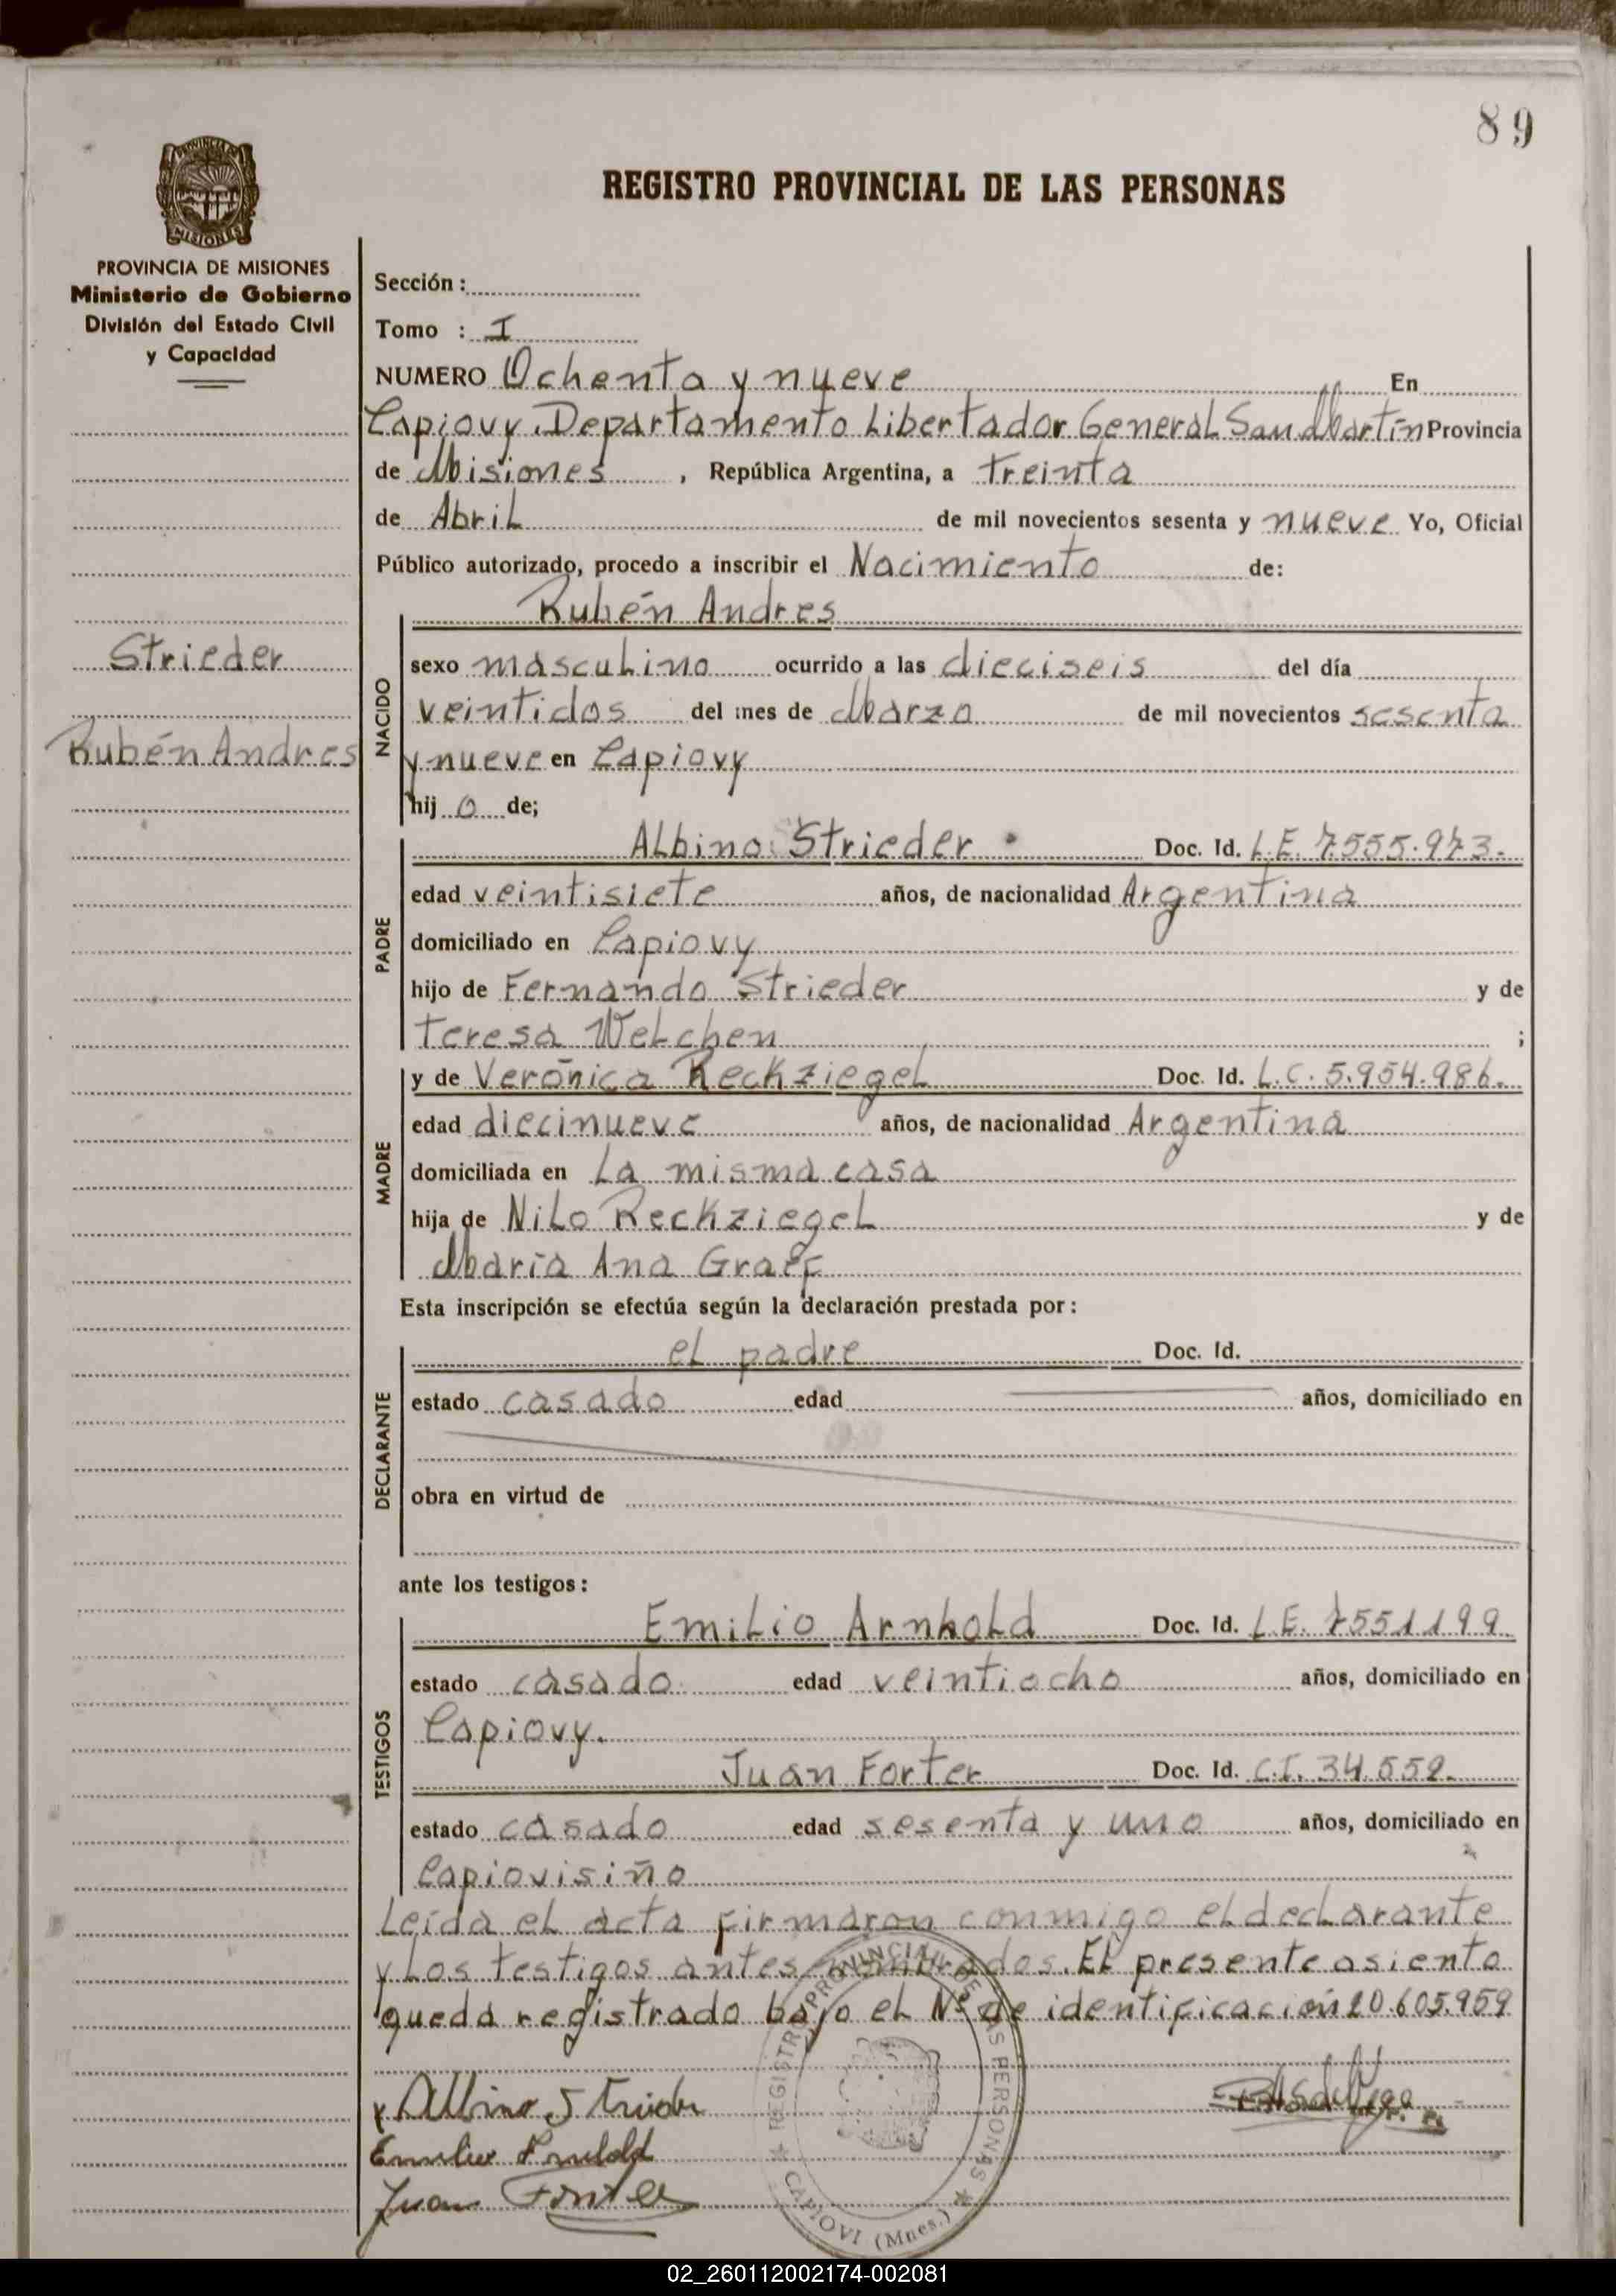 89
PROVINCIA DE MISIONES
REGISTRO PROVINCIAL DE LAS PERSONAS
PROVINCIA DE MISIONES
Ministerio de Gobierno
División del Estado Civil
y Capacidad
Strieder
Rubén Andres
Sección:
Tomo : I
NUMERO Ochenta y nueve En
Capiovy Departamento Libertador General San Martín Provincia
de Misiones , República Argentina, a treinta
de Abril de mil novecientos sesenta y nueve Yo, Oficial
Público autorizado, procedo a inscribir el Nacimiento de:
NACIDO
Rubén Andres
sexo masculino ocurrido a las dieciseis del día
veintidos del mes de Marzo de mil novecientos sesenta
y nueve en Capiovy
hij o de;
PADRE
Albino Strieder Doc. Id. L.E. 7.555.973.
edad veintisiete años, de nacionalidad Argentina
domiciliado en Capiovy
hijo de Fernando Strieder y de
Teresa Welchen ;
MADRE
y de Verónica Reckziegel Doc. Id. L.C. 5.954.986.
edad diecinueve años, de nacionalidad Argentina
domiciliada en la misma casa
hija de Nilo Reckziegel y de
María Ana Graef
Esta inscripción se efectúa según la declaración prestada por:
DECLARANTE
el padre Doc. Id.
estado casado edad años, domiciliado en
obra en virtud de
ante los testigos:
TESTIGOS
Emilio Arnhold Doc. Id. L.E. 7551199.
estado casado edad veintiocho años, domiciliado en
Capiovy.
Juan Forter Doc. Id. C.I. 34.552.
estado casado edad sesenta y uno años, domiciliado en
Capiovisiño
Leída el acta firmaron conmigo el declarante
y los testigos antes nombrados. El presente asiento
queda registrado bajo el Nº de identificación 20.605.959
Albino Strieder
Emilio Arnhold
Juan Forter
REGISTRO PROVINCIAL DE LAS PERSONAS
CAPIOVI (Mnes.)
02_260112002174-002081